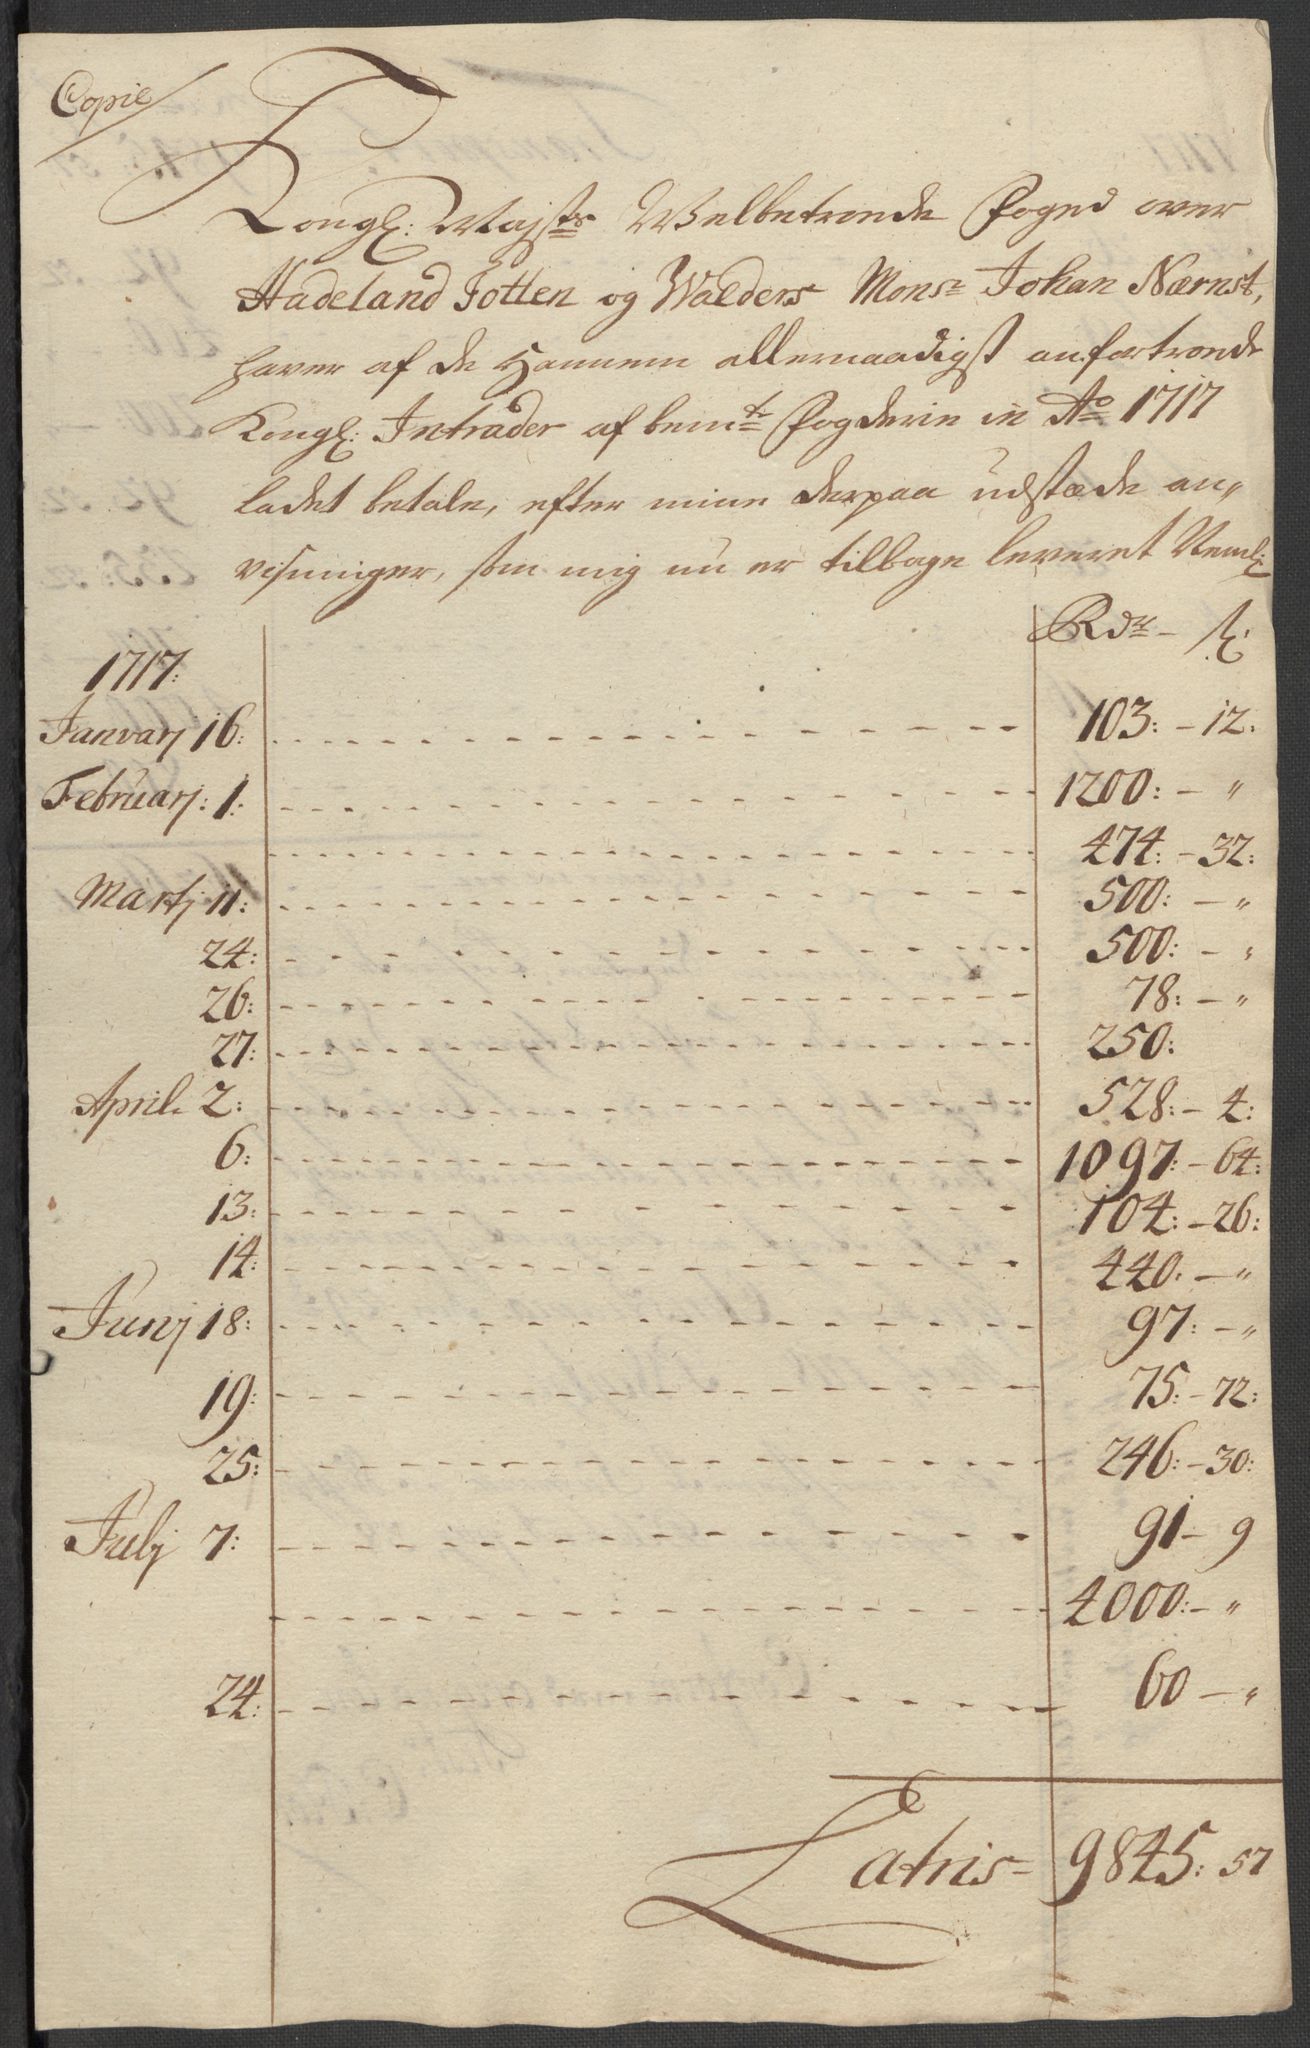 Copie
Kongl: Majsts Welbetroede Foged over
Hadeland Totten og Walders Monsr Johan Nærnst,
haver af de Hannem allernaadigst anfortroede
Kongl: Intrader af bemte Fogderie in Ao 1717
ladet betale, efter mine derpaa udstæde an„
visninger, som mig nu er tilbage leveret Neml:
Rdr – ß:
1717:
Januarj 16: 103: – 12:
Februarj: 1: 1200: – „
474: – 32:
Martj 11: 500: – „
24: 500: – „
26: 78: – „
27: 250:
April 2: 528: – 4:
6: 1097: – 64:
13: 104: – 26:
14: 440. – „
Junj 18: 97: – „
19: 75: – 72:
25: 246: – 30:
Julj 7: 91 – 9
4000: – „
24: 60 – „
Latris = 9845: 57